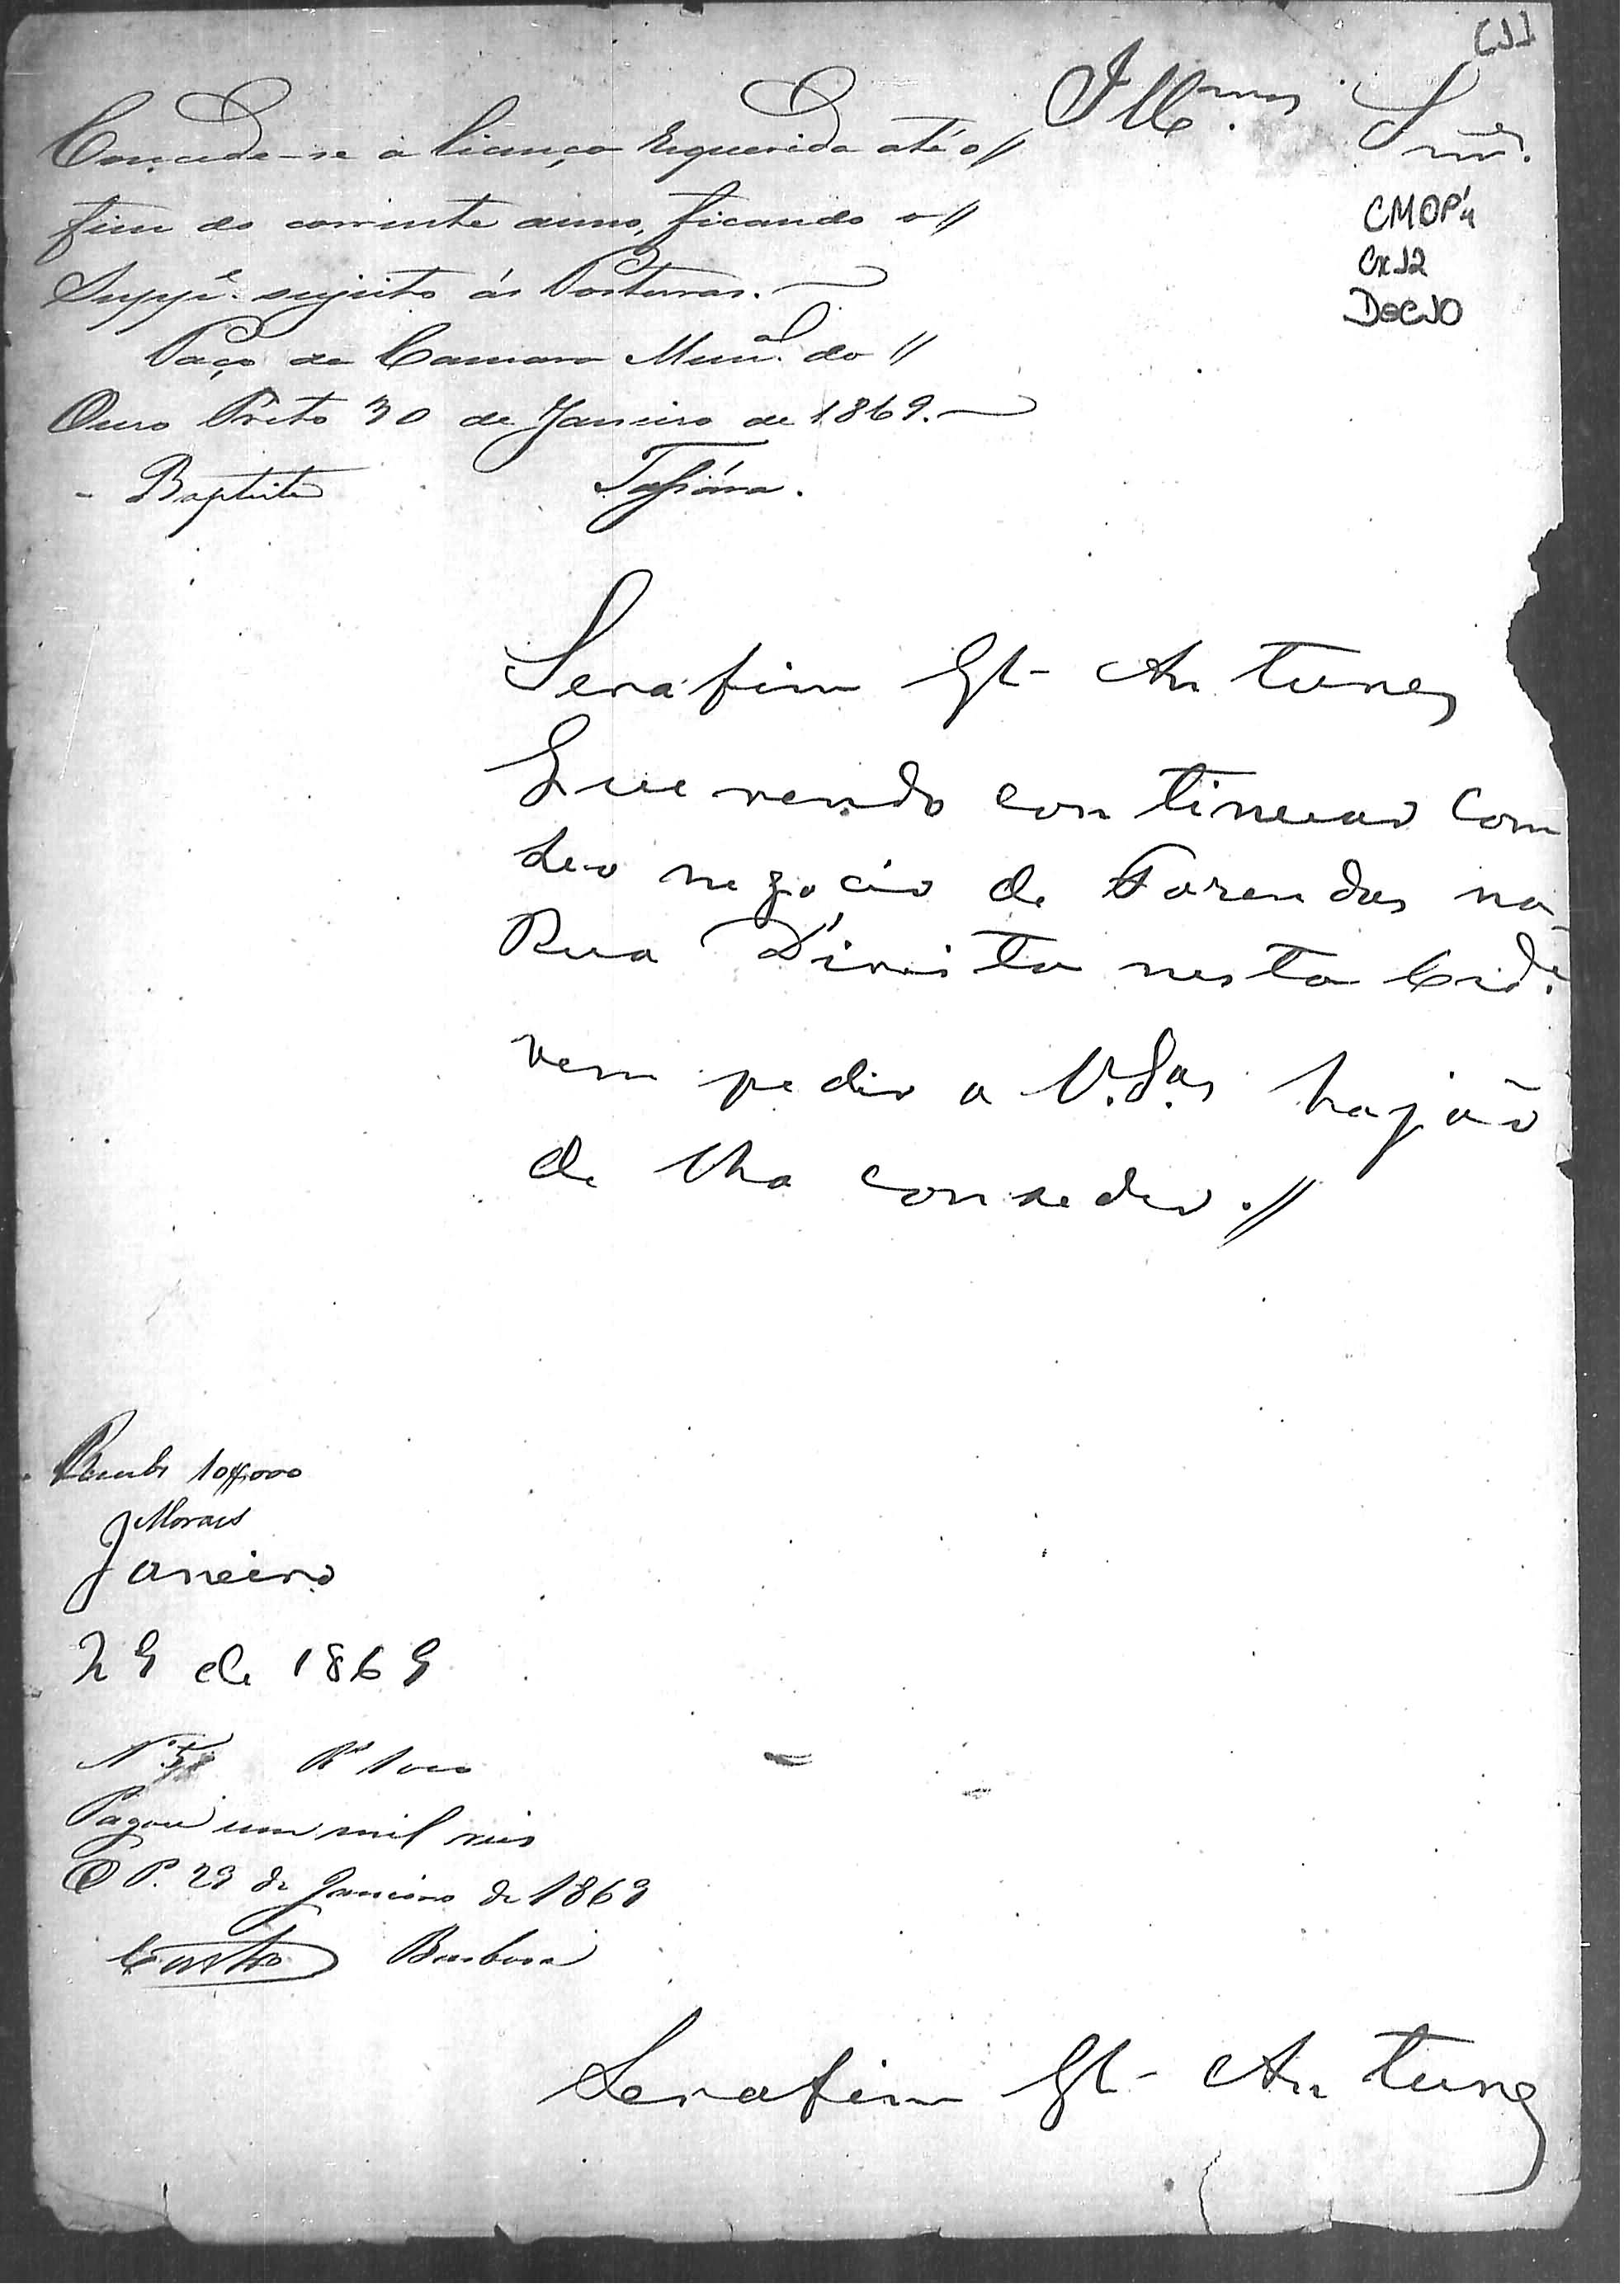 [1]
Ill.mos Snr.es
CMOP
Cx 12
Doc 10
Concede-se a licença requerida até o //
fim do corrente anno, ficando o //
Supp.e sujeito ás Posturas.
Paço da Camara Mun.al do //
Ouro Preto 30 de Janeiro de 1869.
Baptista
Serafim Antunes
Querendo continuar com
seo negocio de Fazendas na
Rua Direita nesta Cid.e
vem pedir a V.S.as hajão
de lha conseder. //
Recebi 10$000
Moraes
Janeiro
29 de 1869
N. R.s 1000
Pagou um mil reis
O P. 29 de Janeiro de 1869
Castro Barbosa
Serafim Antunes